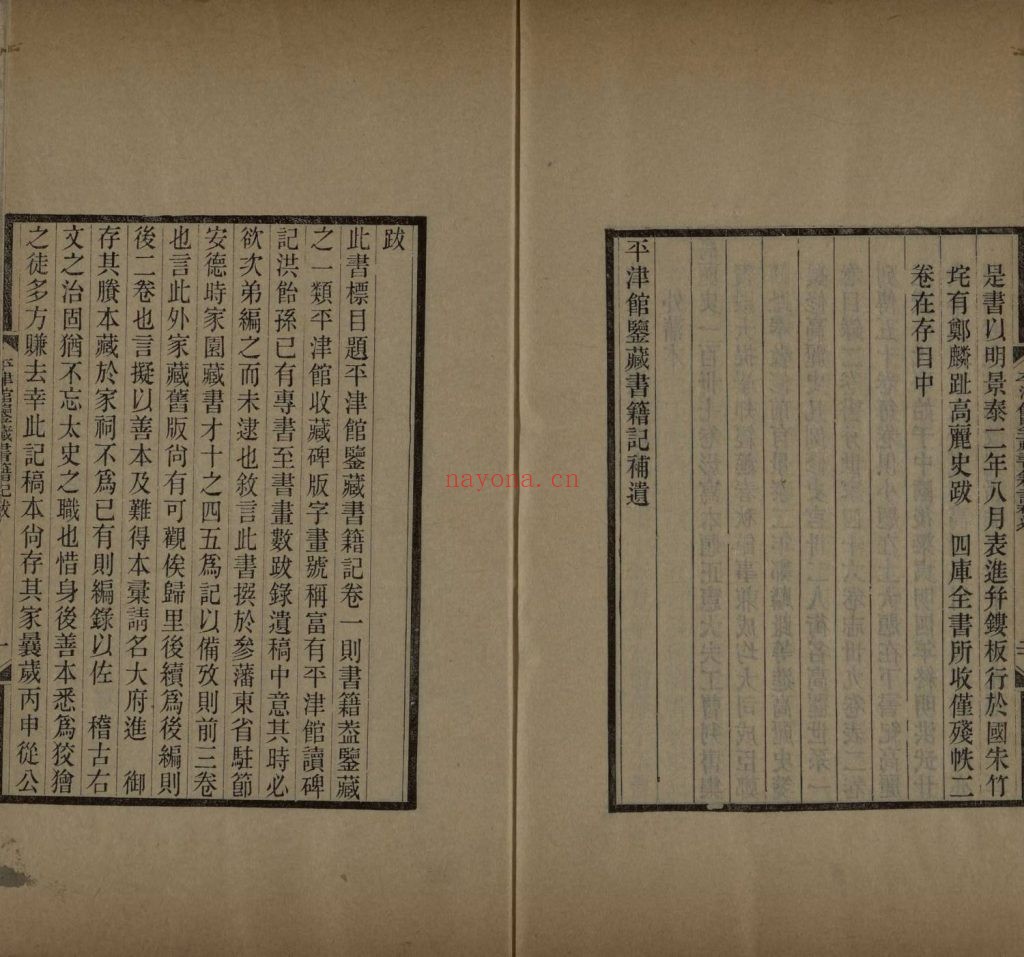 是書以明景泰二年八月表進幷鏤板行於國朱竹
垞有鄭麟趾高麗史跋　四庫全書所收僅殘帙二
卷在存目中
平津館鑒藏書籍記補遺
跋
此書標目題平津館鑒藏書籍記卷一則書籍葢鑒藏
之一類平津館收藏碑版字畫號稱富有平津館讀碑
記洪飴孫已有專書至書畫數跋錄遺稿中意其時必
欲次弟編之而未逮也敘言此書撰於參藩東省駐節
安德時家園藏書才十之四五爲記以備攷則前三卷
也言此外家藏舊版尙有可觀俟歸里後續爲後編則
後二卷也言擬以善本及難得本彙請名大府進　御
存其賸本藏於家祠不爲已有則編錄以佐　稽古右
文之治固猶不忘太史之職也惜身後善本悉爲狡獪
之徒多方賺去幸此記稿本尙存其家曩歲丙申從公
平津館鑒藏書籍記跋
一
nayona.cn